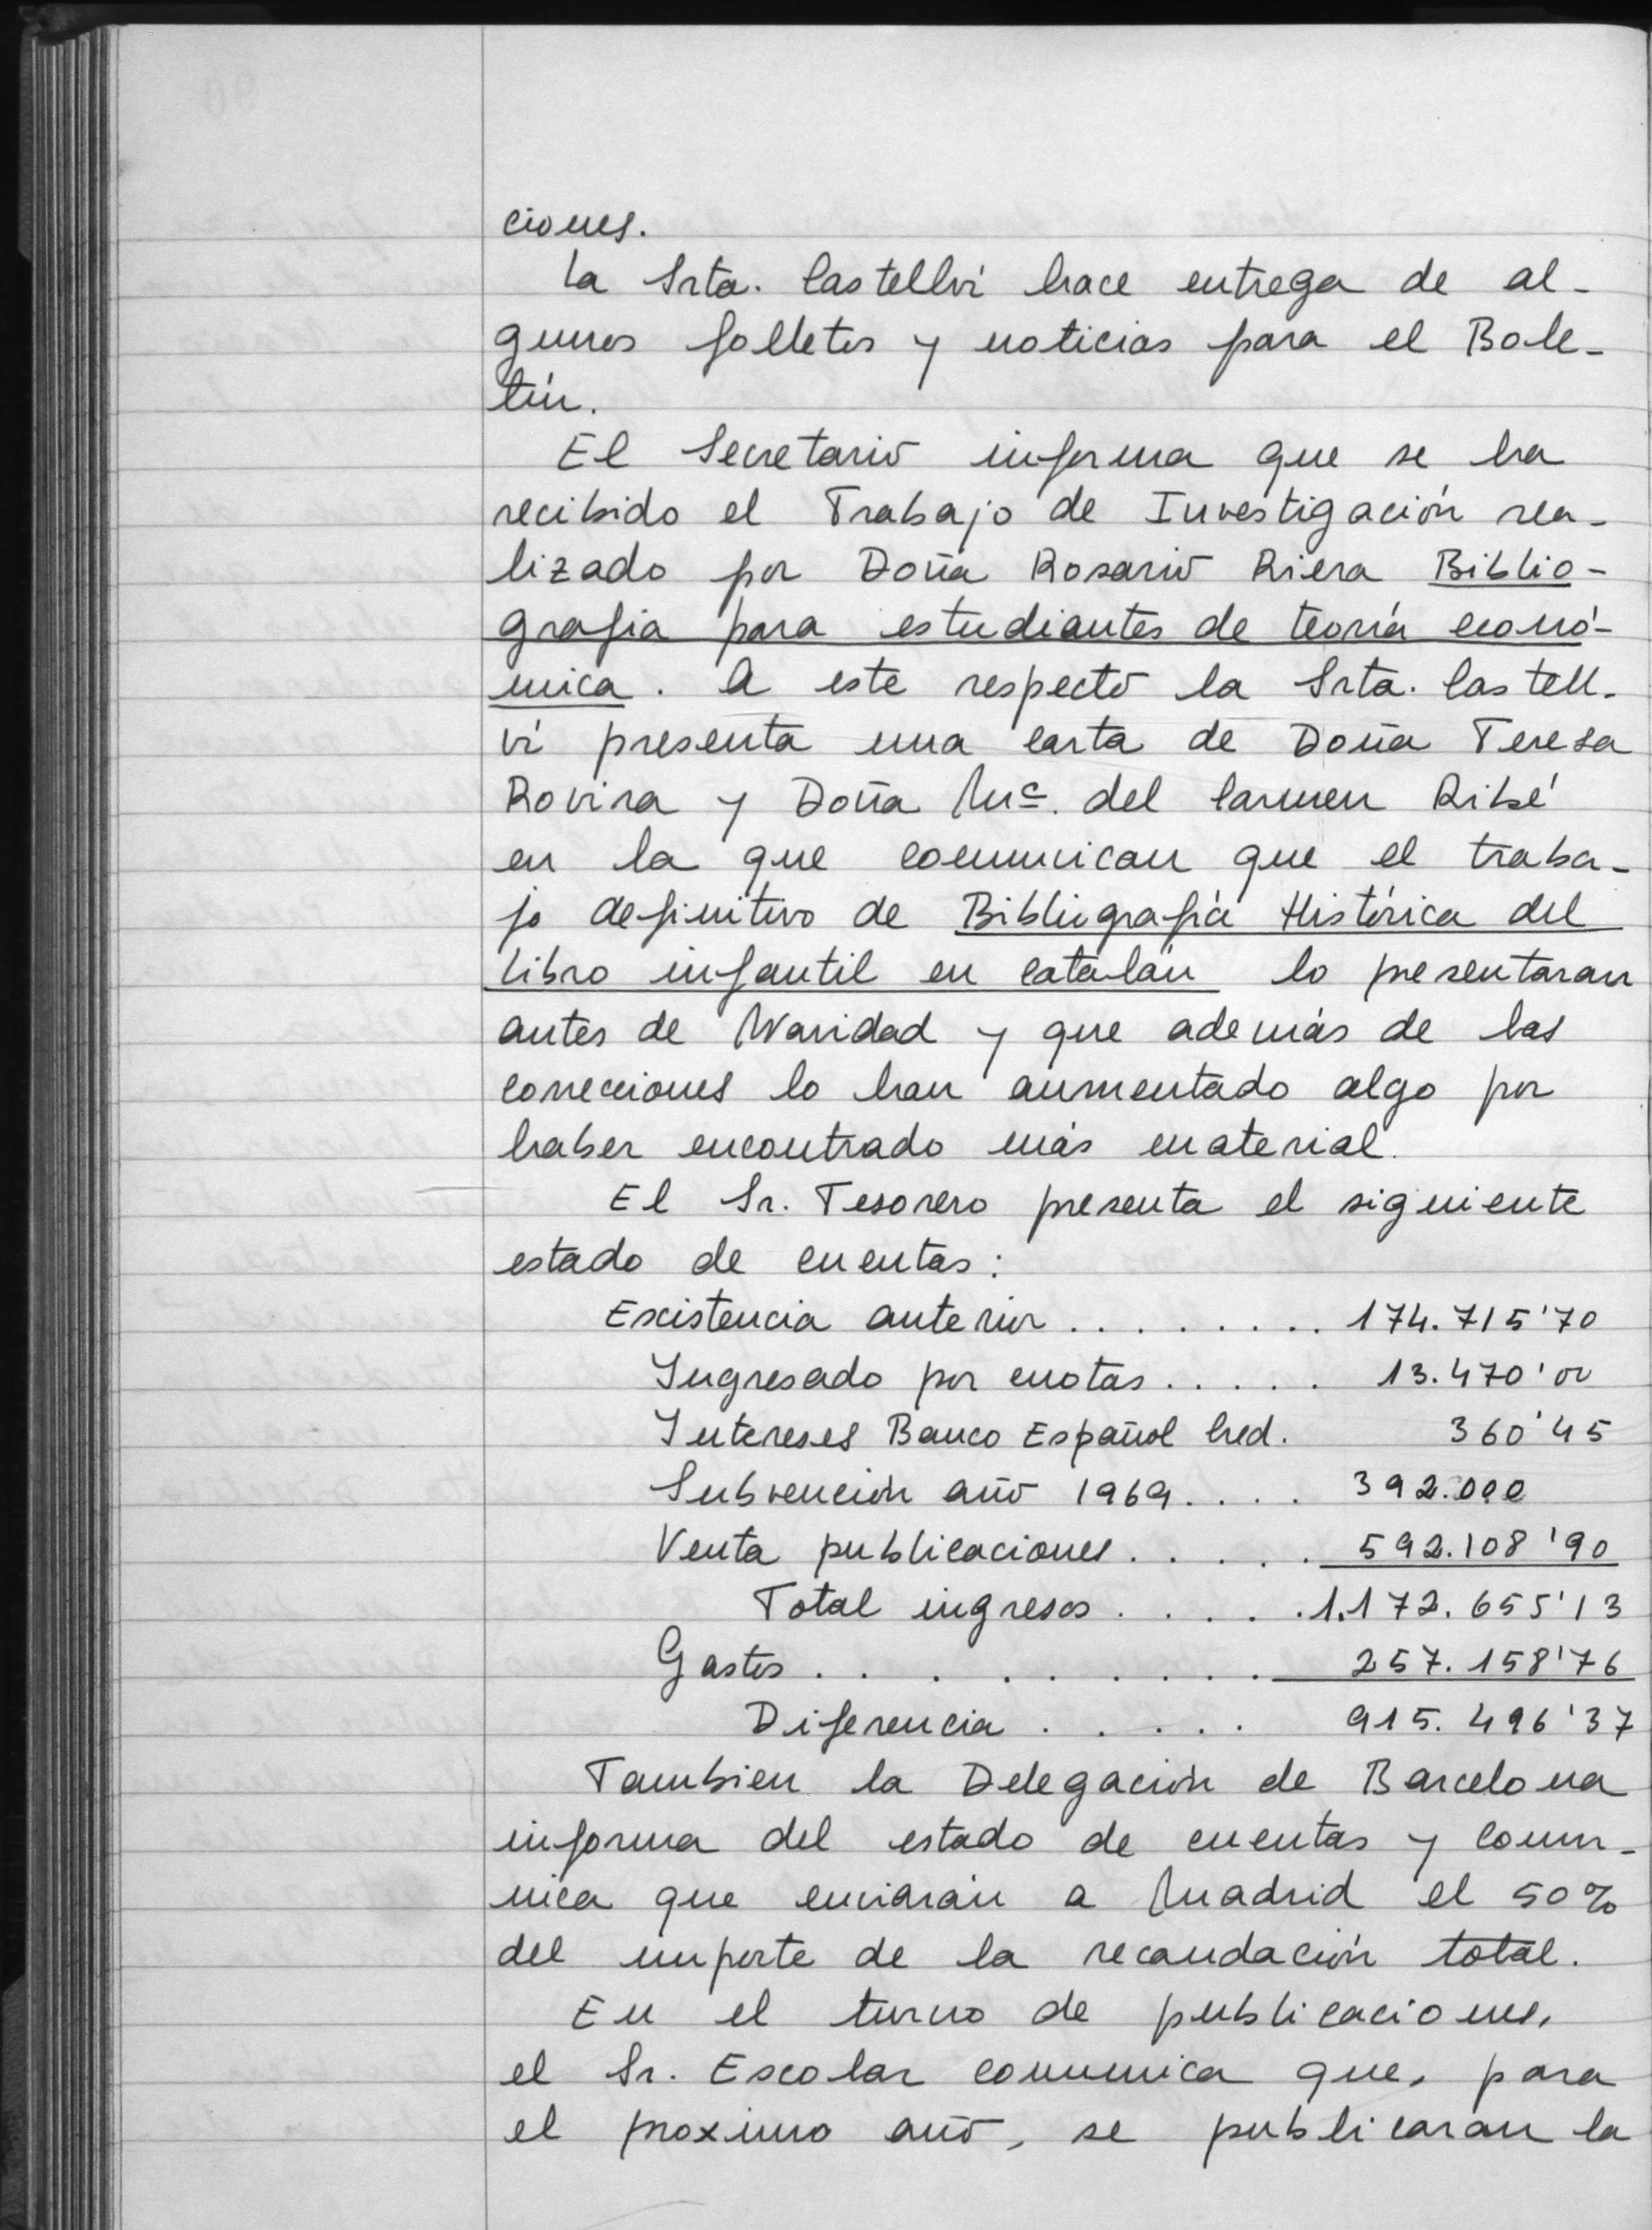 ciones.
La Srta. Castellví hace entrega de al-
gunos folletos y noticias para el Bole-
tín.
El Secretario informa que se ha
recibido el Trabajo de Investigación rea-
lizado por Doña Rosario Riera Biblio-
grafia para estudiantes de teoría econó-
mica. A este respecto la Srta. Castell-
ví presenta una carta de Doña Teresa
Rovira y Doña Mª. del Carmen Ribé
en la que comunican que el traba-
jo definitivo de Bibliografía Histórica del
libro infantil en catalán lo presentaran
antes de Navidad y que además de las
correcciones lo han aumentado algo por
haber encontrado más material.
El Sr. Tesorero presenta el siguiente
estado de cuentas:
Existencia anterior ........ 174.715'70
Ingresado por cuotas ..... 13.470'00
Intereses Banco Español Cred. 360'45
Subvención año 1969 .... 392.000
Venta publicaciones ..... 592.108'90
Total ingresos ..... 1.172.655'13
Gastos ......... 257.158'76
Diferencia ..... 915.496'37
Tambien la Delegación de Barcelona
informa del estado de cuentas y comu-
nica que enviarán a Madrid el 50%
del importe de la recaudación total.
En el turno de publicaciones,
el Sr. Escolar comunica que, para
el proximo año, se publicaran la